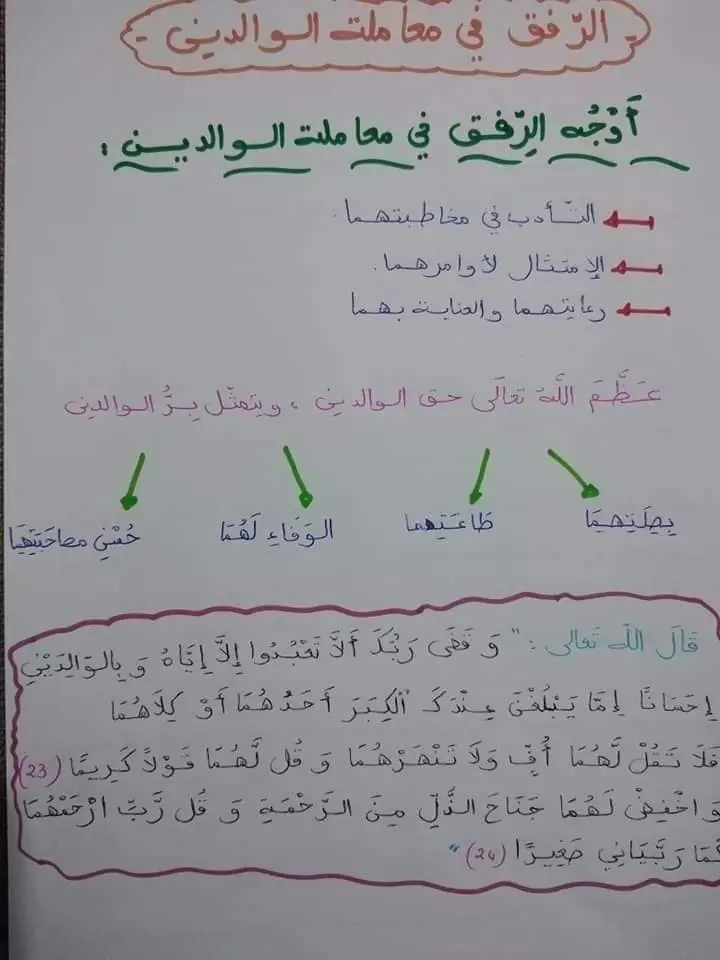 - الرّفق في معاملة الوالدين -
أَوْجُه الرِّفق في معاملة الوالدين :
التّأدب في مخاطبتهما.
الإمتثال لأوامرهما.
رعايتهما والعناية بهما
عَظَّمَ اللَّهُ تعَالَى حق الوالدين ، ويتمثّل بِرُّ الوالدين
بِصِلَتِهِمَا طَاعَتِهِما الوَفَاءِ لَهُمَا حُسْنِ مصاحَبَتِهِمَا
قَالَ اللَّه تَعَالى : " وَ قَضَى رَبُّكَ أَلاَّ تَعْبُدُوا إِلاَّ إِيَّاهُ وَ بِالوَالِدَيْنِ
إِحْسَانًا إِمَّا يَبْلُغَنَّ عِنْدَكَ الْكِبَرَ أَحَدُهُمَا أَوْ كِلاَهُمَا
فَلاَ تَقُلْ لَّهُمَا أُفٍّ وَلاَ تَنْهَرْهُمَا وَ قُل لَّهُمَا قَوْلاً كَرِيمًا (23)
وَ اخْفِضْ لَهُمَا جَنَاحَ الذُّلِّ مِنَ الرَّحْمَةِ وَ قُل رَّبِّ ارْحَمْهُمَا
كَمَا رَبَّيَانِي صَغِيرًا (24) "